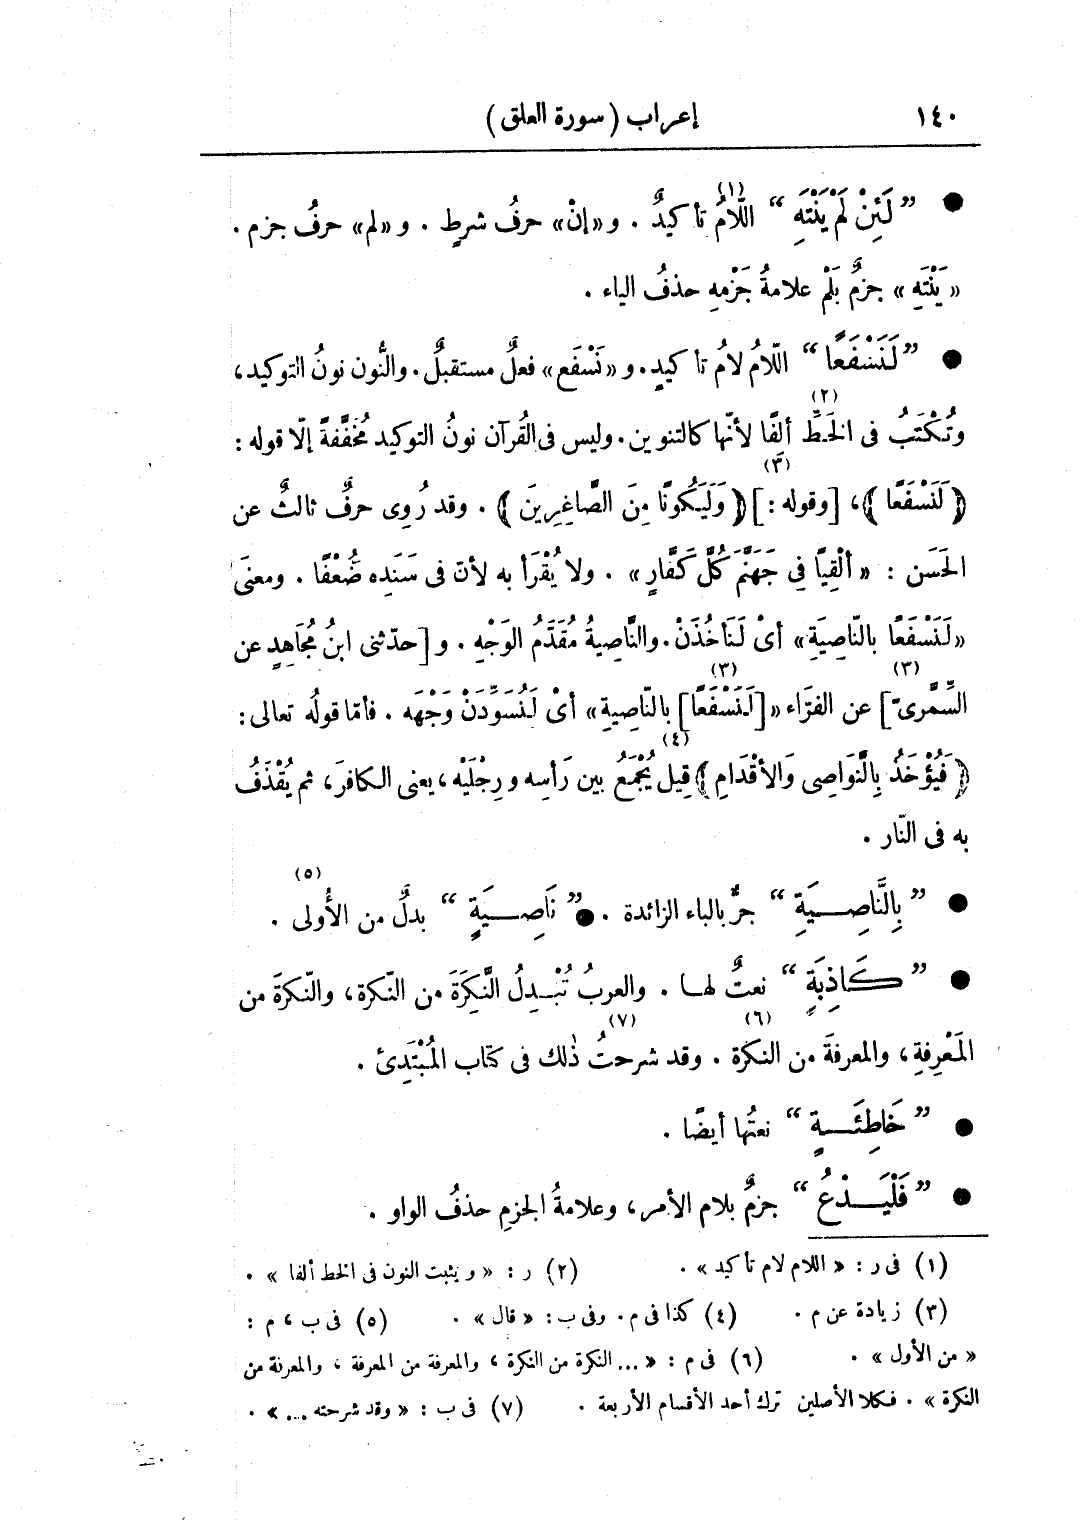 ١٤٠ إعراب ( سورة العلق )
● ” لَئِنْ لَمْ يَنْتَهِ “ اللّامُ(١) تأكيدٌ . و «إنْ» حرفُ شرطٍ . و «لم» حرفُ جزم .
« يَنْتَهِ » جزمٌ بَلْم علامةُ جَزْمهِ حذفُ الياء .
● ” لَنَسْفَعًا “ اللّامُ لامُ تأكيدٍ . و «نَسْفَع» فعلٌ مستقبلٌ . والنُّون نونُ التوكيد ،
وتُكْتَبُ فى الخَطِّ(٢) ألِفًا لأنّها كالتنوين . وليس فى القُرآن نونُ التوكيد مُخَفَّفةً إلّا قوله :
﴿ لَنَسْفَعًا ﴾ ، [وقوله :](٣) ﴿ وَلَيَكُونًا مِنَ الصَّاغِرِينَ ﴾ . وقد رُوِى حرفٌ ثالثٌ عن
الحَسَن : « ألْقِيًا فِي جَهَنَّمَ كُلَّ كَفَّارٍ » . ولا يُقْرَأ به لأنّ فى سَنَدِه ضُعْفًا . ومعنَى
« لَنَسْفَعًا بالنّاصِيَةِ » أىْ لَنَأخُذَنْ . والنَّاصِيةُ مُقَدَّمُ الوَجْهِ . و [حدّثنى ابنُ مُجَاهِدٍ عن
السِّمَّرىّ](٣) عن الفرّاء «[لَنَسْفَعًا](٣) بالنّاصِيةِ » أىْ لَنُسَوِّدَنْ وَجْهَه . فأمّا قولُه تعالى :
﴿ فَيُؤْخَذُ بِالنَّوَاصِى وَالأَقْدَامِ ﴾ قِيل(٤) يُجْمَعُ بين رَأسِه ورِجْلَيْه ، يعنى الكافرَ ، ثم يُقْذَفُ
به فى النّار .
● ” بِالنَّاصِيَةِ “ جرٌّ بالباء الزائدة . ● ” نَاصِيَةٍ “ بدلٌ من الأُولى(٥) .
● ” كَاذِبَةٍ “ نعتٌ لها . والعربُ تُبْدِلُ النَّكِرَةَ من النّكرة ، والنّكرةَ من
المَعْرِفةِ ، والمعرفةَ من النكرة(٦) . وقد شرحتُ(٧) ذٰلك فى كتاب المُبْتَدِئ .
● ” خَاطِئَةٍ “ نعتُها أيضًا .
● ” فَلْيَدْعُ “ جزمٌ بلام الأمر ، وعلامةُ الجزمِ حذفُ الواو .
(١) فى ر : « اللام لام تأكيد » . (٢) ر : « ويثبت النون فى الخط ألفا » .
(٣) زيادة عن م . (٤) كذا فى م . وفى ب : « قال » . (٥) فى ب ، م :
« من الأول » . (٦) فى م : « ... النكرة من النكرة ، والمعرفة من المعرفة ، والمعرفة من
النكرة » . فكلا الأصلين ترك أحد الأقسام الأربعة . (٧) فى ب : « وقد شرحته ... » .